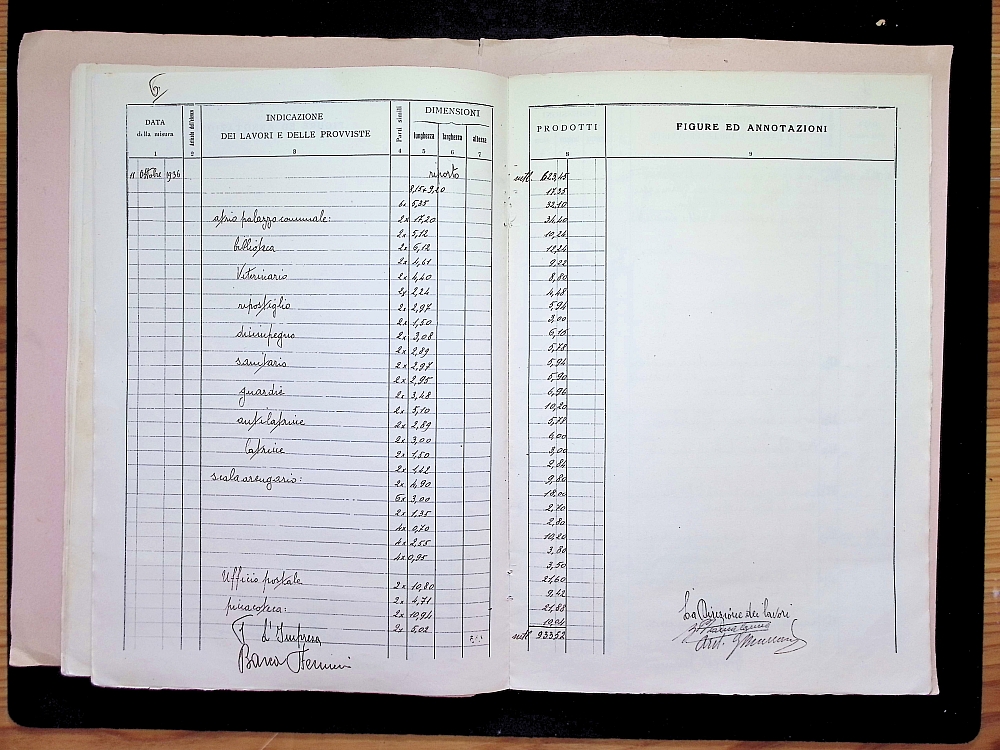 6
DATA della misura
INDICAZIONE DEI LAVORI E DELLE PROVVISTE
Parti simili
DIMENSIONI
lunghezza larghezza altezza
PRODOTTI
FIGURE ED ANNOTAZIONI
1 2 3 4 5 6 7 8 9
11 Ottobre 1936 riporto mtl. 623,45
8,15+9,20 17,35
6x 5,35 32,10
atrio palazzo comunale: 2x 17,20 34,40
2x 5,12 10,24
biblioteca 2x 6,12 12,24
2x 4,61 9,22
Veterinario 2x 4,40 8,80
2x 2,24 4,48
ripostiglio 2x 2,97 5,94
2x 1,50 3,00
disimpegno 2x 3,08 6,16
2x 2,89 5,78
sanitario 2x 2,97 5,94
2x 2,95 5,90
guardie 2x 3,48 6,96
2x 5,10 10,20
antilatrine 2x 2,89 5,78
2x 3,00 6,00
latrine 2x 1,50 3,00
2x 1,42 2,84
scala arengario: 2x 4,90 9,80
6x 3,00 18,00
2x 1,35 2,70
4x 0,70 2,80
4x 2,55 10,20
4x 0,95 3,80
3,50
Ufficio postale 2x 10,80 21,60
2x 4,71 9,42
pinacoteca: 2x 10,94 21,88
2x 5,02 10,04
mtl. 933,52
L'Impresa
La Direzione dei lavori